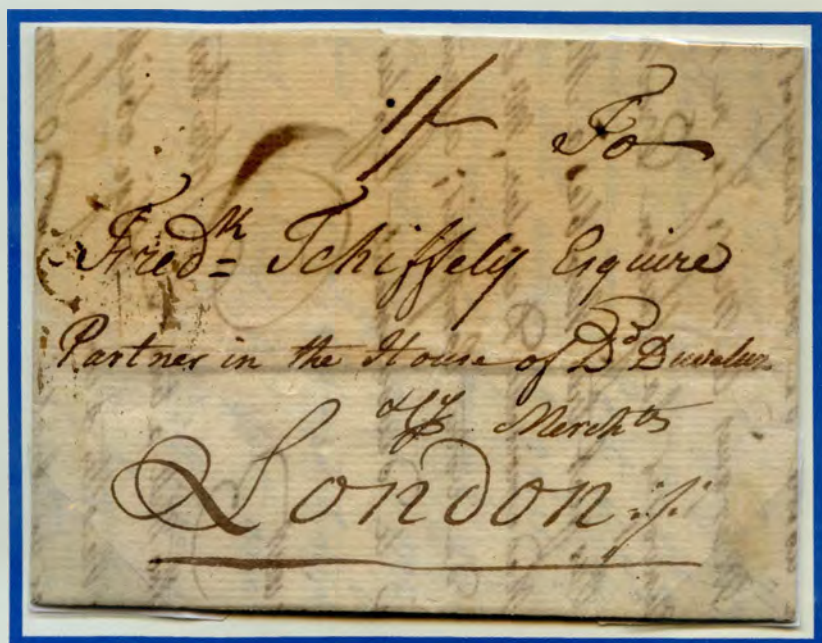 1/- To
Fred^k= Tchiffely Esquire
Partner in the House of D^d
& C^y Merch^ts
London